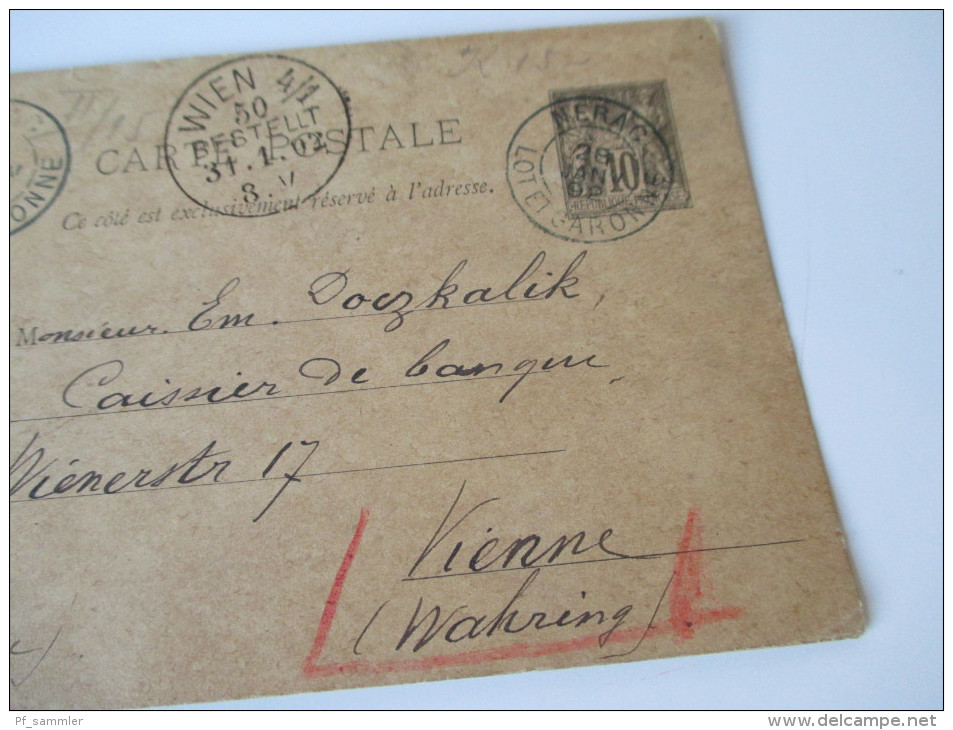 K 15
II/15
WIEN 4/1
50
BESTELLT
31.1.92
8.V
NERAC
28
JANV
92
LOT ET GARONNE
10
REPUBLIQUE
ONNE
CARTE POSTALE
Ce côté est exclusivement réservé à l'adresse.
Monsieur. Em. Doczkalik,
Caissier de banque
Wienerstr 17
Vienne
(Wahring).
Pf_sammler
http://www.delcampe.net